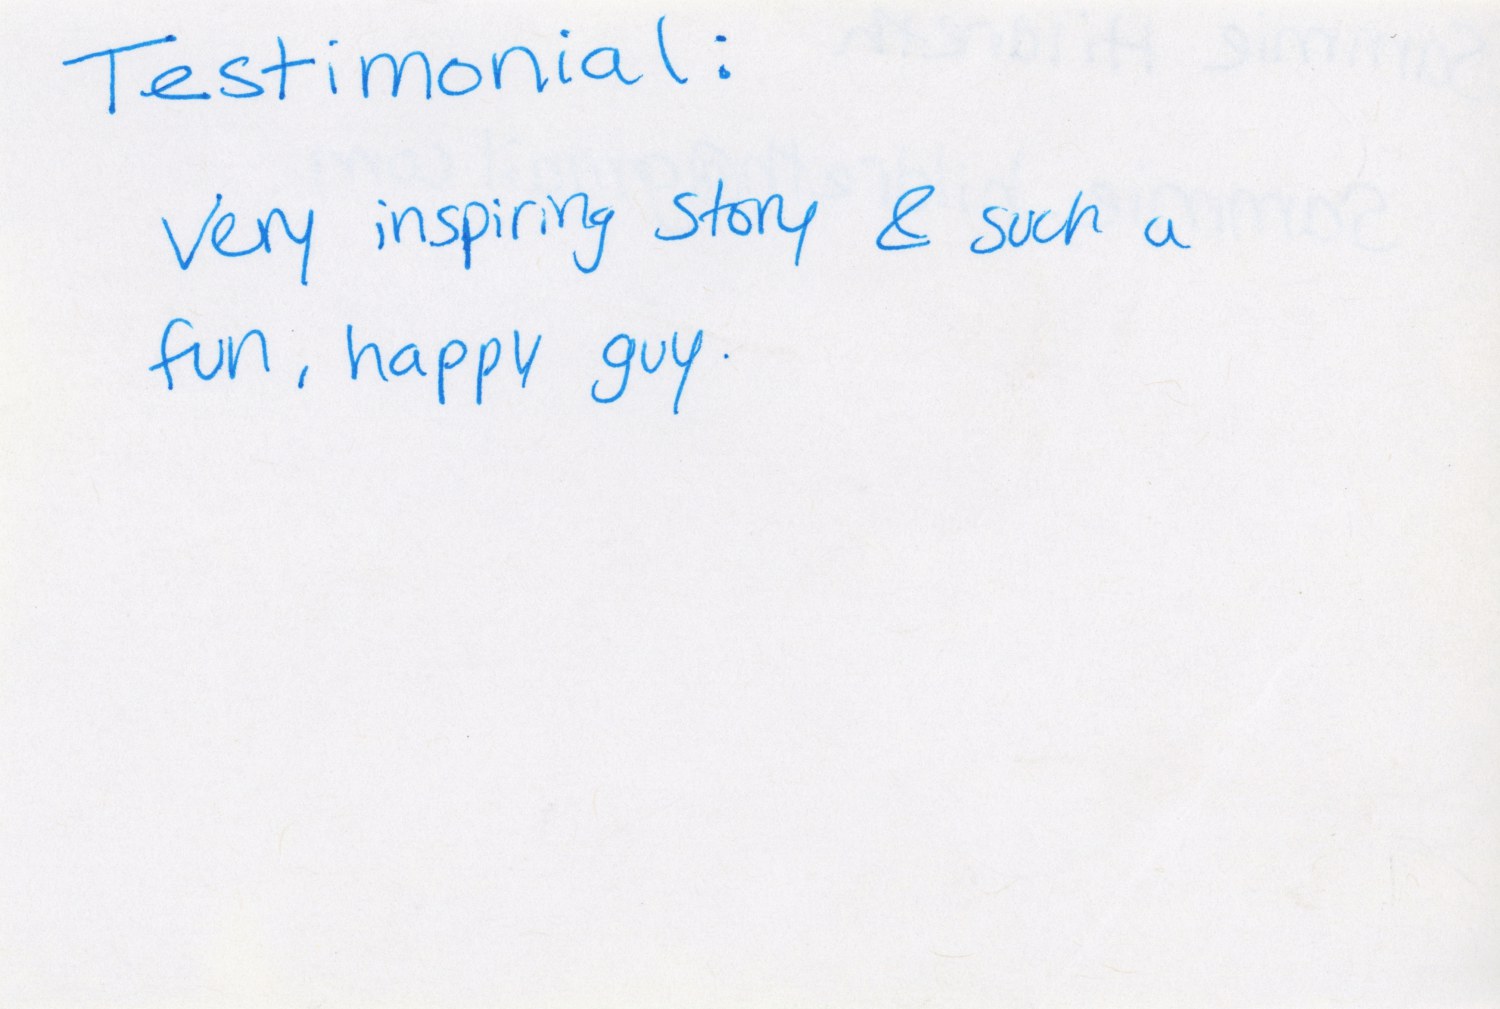 Testimonial:
Very inspiring story & such a
fun, happy guy.